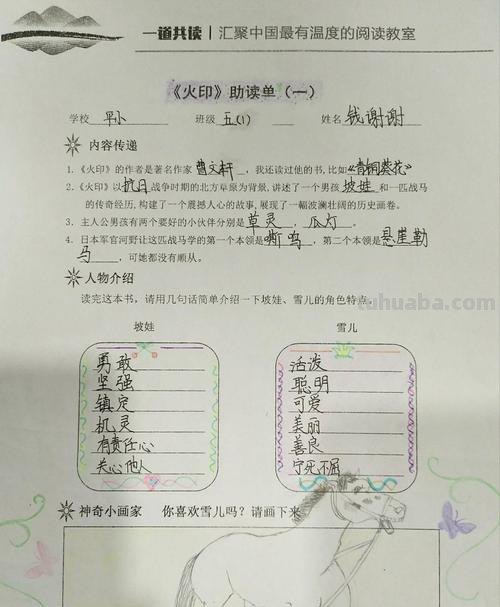 一道共读 | 汇聚中国最有温度的阅读教室
《火印》助读单（一）
学校 平小 班级 五(1) 姓名 钱谢谢
内容传递
1.《火印》的作者是著名作家 曹文轩 ，我还读过他的书,比如《青铜葵花》
2.《火印》以 抗日 战争时期的北方草原为背景,讲述了一个男孩 坡娃 和一匹战马
的传奇经历,构建了一个震撼人心的故事,展现了一幅波澜壮阔的历史画卷。
3. 主人公男孩有两个要好的小伙伴分别是 草灵 ， 瓜灯 。
4. 日本军官河野让这匹战马学的第一个本领是 嘶鸣 ，第二个本领是 悬崖勒
马 ，可她都没有顺从。
人物介绍
读完这本书，请用几句话简单介绍一下坡娃、雪儿的角色特点。
tuhuaba.com
坡娃 雪儿
勇敢 活泼
坚强 聪明
镇定 可爱
机灵 美丽
有责任心 善良
关心他人 宁死不屈
神奇小画家 你喜欢雪儿吗？请画下来